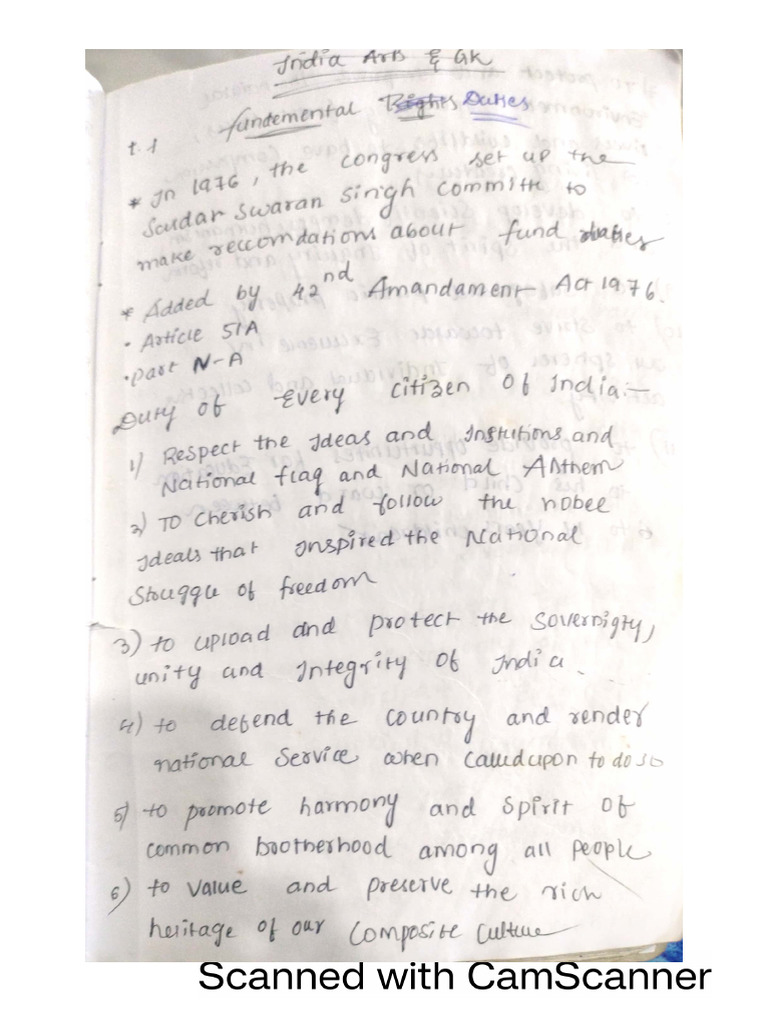 India Art & GK
fundemental Rights Duties
t.1
* In 1976, the congress set up the
Sardar Swaran Singh committe to
make reccomdations about fund duties
* Added by 42nd Amandament Act 1976.
• Article 51A
• part IV-A
Duty of Every citizen Of India:-
1) Respect the Ideas and Instutions and
National flag and National Anthem
2) TO Cherish and follow the nobel
Ideals that Inspired the National
Struggle of freedom
3) to upload and protect the Sovernigty,
unity and Integrity Of India.
4) to defend the country and render
national Service when Called upon to do so
5) to promote harmony and Spirit Of
common brotherhood among all people
6) to value and preserve the rich
heritage of our Composite Culture
Scanned with CamScanner